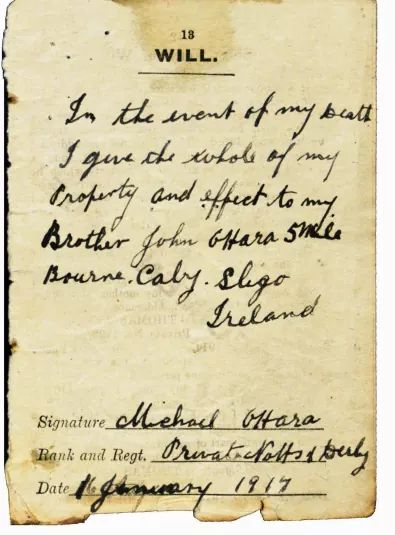 13
WILL.
In the event of my Death
I give the whole of my
Property and effect to my
Brother John OHara 5 Mile
Bourne. Caby. Sligo
Ireland
Signature Michael OHara
Rank and Regt. Private Notts & Derby
Date January 1917